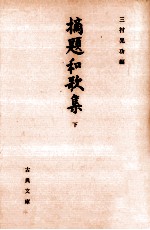 三村晃功編
摘題和歌集
下
古典文庫